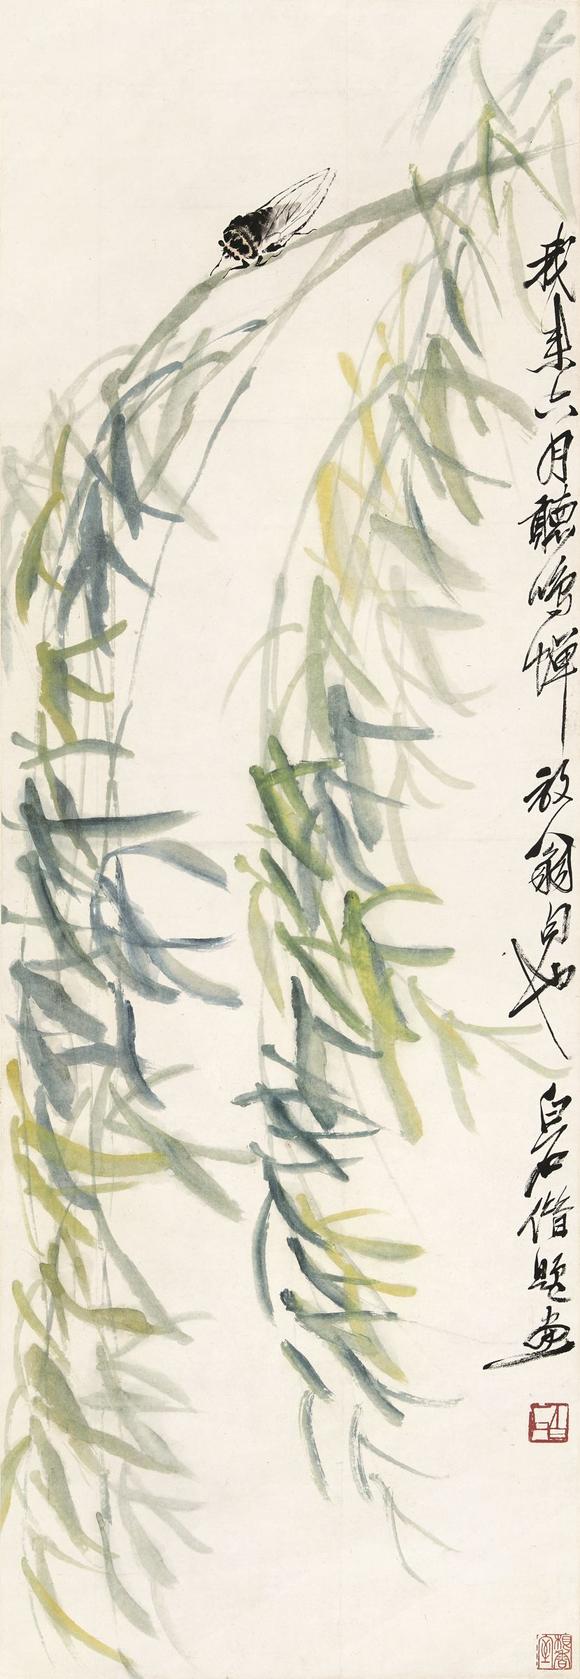 我来六月聽鳴蟬 放翁句也 白石借題畫
白石